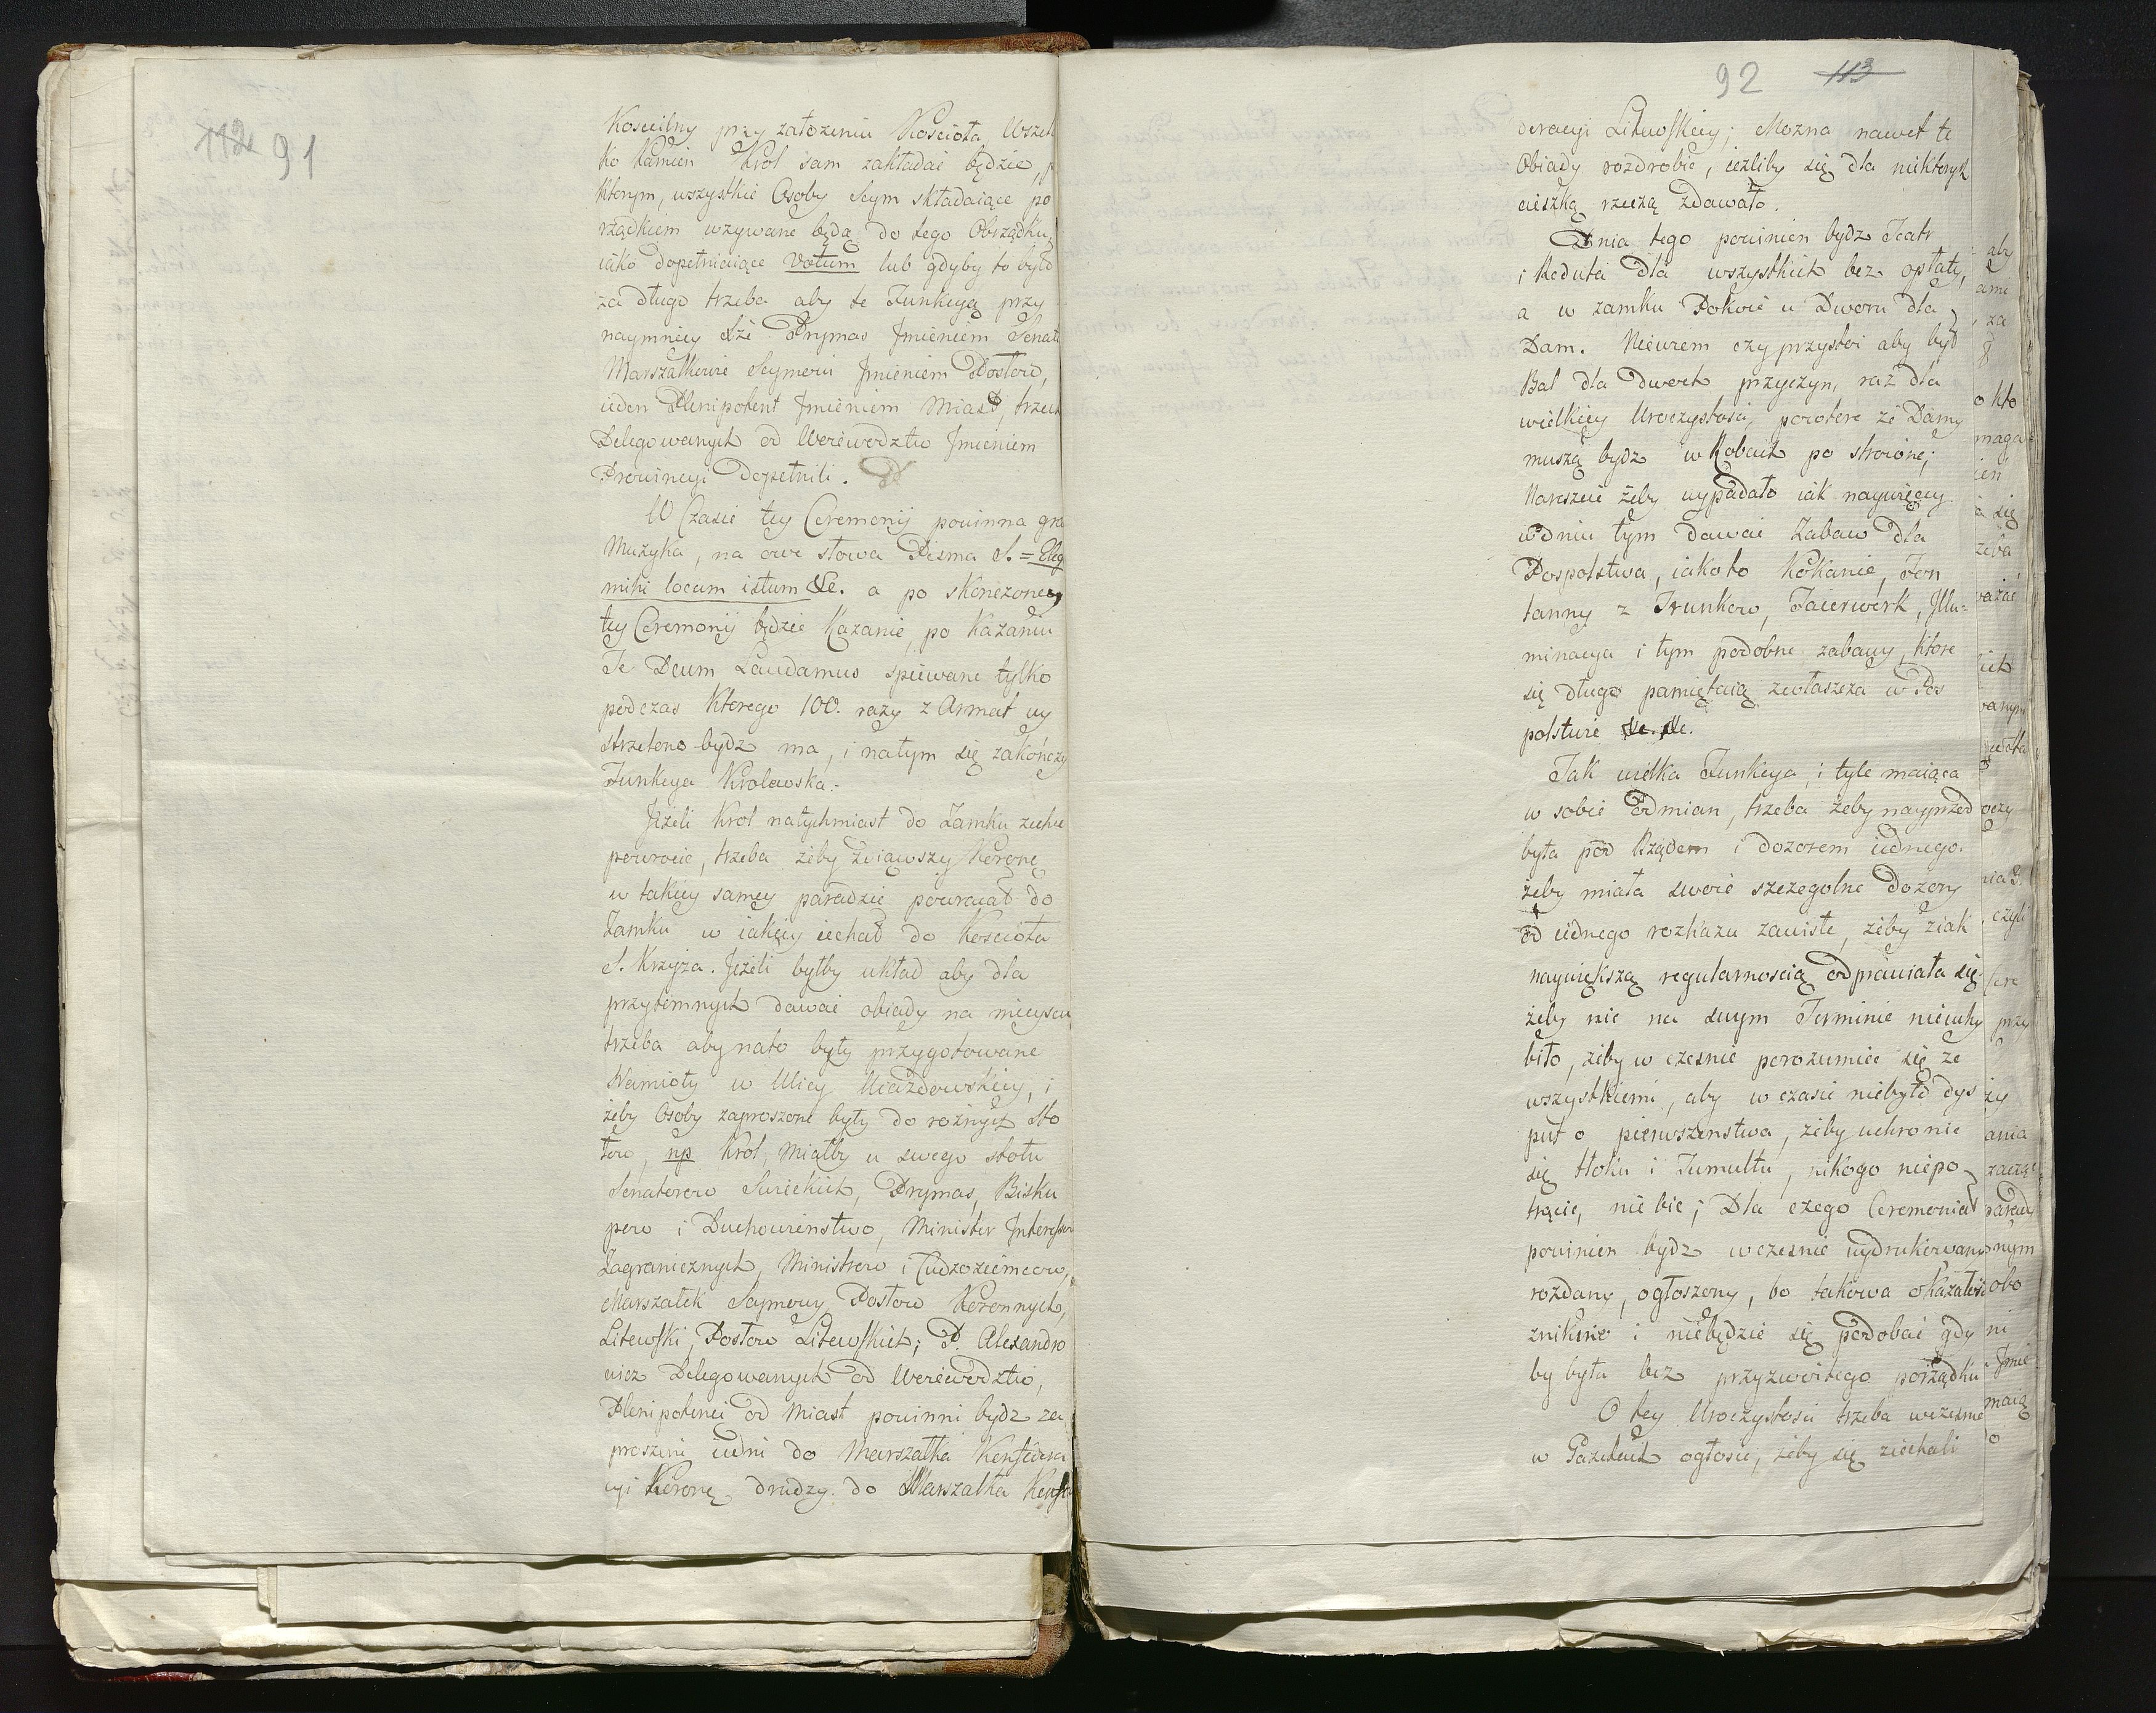 112 91
Kosciilny przy załozeniu Kościoła, Wszel
ko Kamień Krol sam zakładać będzie, p
którym, wszystkie Osoby Seym składaiące po
rządkiem wzywane będą do tego Obrządku,
iako dopełniaiące Votum lub gdyby to było
za długo trzeba aby te Funkcyą przy
naymniey Xże Prymas Jmieniem Senatu
Marszałkowie Seymowi Jmieniem Posłow,
ieden Plenipotent Jmieniem Miast, trzech
Delegowanych od Woiewodztw Jmieniem
Prowincyi Dopełnili.
W Czasie tey Ceremonij powinna gra
Muzyka, na owe słowa Pisma S. = Eleg
mihi locum istum &c. a po skończoney
tey Ceremonij będzie Kazanie, po Kazaniu
Te Deum Laudamus spiewane tylko
podczas Ktorego 100. razy z Armat wy
strzelono bydz ma, i natym się zakończy
Funkcya Krolewska.-
Jeżeli Krol natychmiast do Zamku zechce
powrocic, trzeba żeby zdiąwszy Koronę
w takiey samey paradzie powracał do
Zamku w iakiey iechał do Koscioła
S. Krzyża. Jeżeli byłby układ aby dla
przytomnych dawać obiady na mieyscu
trzeba aby nato były przygotowane
Namioty w Ulicy Uiazdowskiey, i
żeby Osoby zaproszone były do rożnych sto
łow, np Krol, miałby u swego stołu
Senatorow Swieckich, Prymas, Bisku
pow i Duchowieństwo, Minister Interessow
Zagranicznych, Ministrow i Cudzoziemcow,
Marszałek Sejmowy Posłow Koronnych,
Litewski, Posłow Litewskich; P. Alexandro
wicz Delegowanych od Woiewodztw,
Plenipotenci od Miast powinni bydz za
proszeni iedni do Marszałka Konfedera
cyi Koronę, drudzy do Marszałka Konfe
92 113
deracyi Litewskiey; Mozna nawet te
Obiady rozdrobić, ieżliby się dla niektorych
cieszką rzeczą zdawało.
Dnia tego powinien bydz Teatr
i Reduta dla wszystkich bez opłaty,
a w zamku Pokoie u Dworu dla
Dam. Niewiem czy przystoi aby był
Bal dla dwoch przyczyn, raz dla
wielkiey Uroczystosci, powtore że Damy
muszą bydz w Robach po stroione;
Nareszcie żeby wypadało iak naywięcey
w dniu tym dawać Zabaw dla
Pospolstwa, iako to Kokanie, Fon
tanny z Trunkow, Faierwerk, Jllu=
minacya i tym podobne zabawy, ktore
się długo pamiętaią zwłaszcza w Pos
polstwie &c. &c.
Tak wielka Funkcya, i tyle maiąca
w sobie odmian, trzeba żeby nayprzod
była pod Rządem i dozorem iednego.
żeby miała swoie szczegolne dozory
od iednego rozkazu zawisłe, żeby ziak
naywiększą regularnoscią odprawiała się
żeby nic na swym Terminie nieuchy
biło, żeby w czesnie porozumiec się ze
wszystkiemi, aby w czasie niebyło dys
put o pierwszenstwa, żeby uchronic
się tłoku i Tumultu, nikogo niepo
trącic, nie bic; Dla czego Ceremoniał
powinien bydz wczesnie wydrukowany
rozdany, ogłoszony, bo takowa okazałość
zniknie i niebędzie się podobać gdy
by była bez przyzwoitego porządku
O tey Uroczystosci trzeba wczesnie
w Gazetach ogłosic, żeby się ziechali